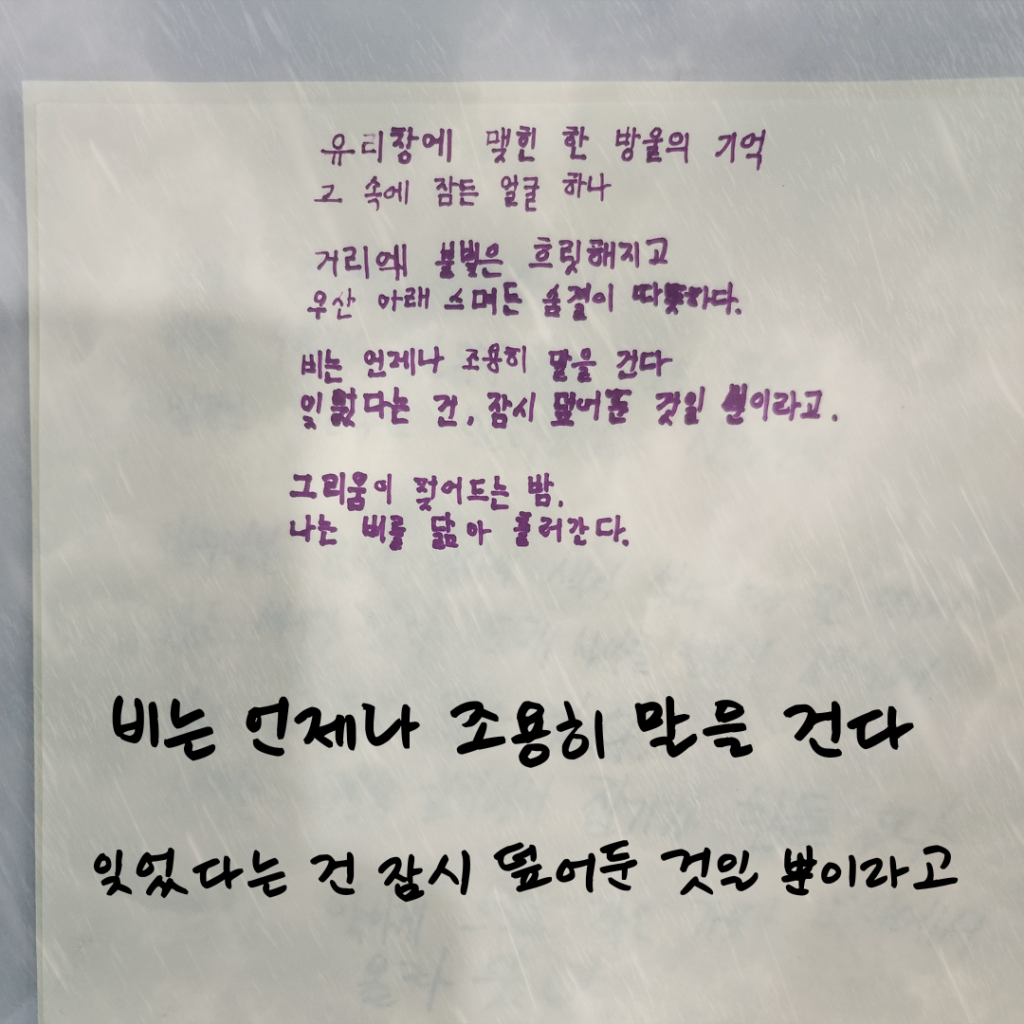 유리창에 맺힌 한 방울의 기억
그 속에 잠든 얼굴 하나
거리에 불빛은 흐릿해지고
우산 아래 스며든 숨결이 따뜻하다.
비는 언제나 조용히 말을 건다
잊었다는 건, 잠시 덮어둔 것일 뿐이라고.
그리움이 젖어드는 밤,
나는 비를 닮아 흘러간다.
비는 언제나 조용히 말을 건다
잊었다는 건 잠시 덮어둔 것일 뿐이라고